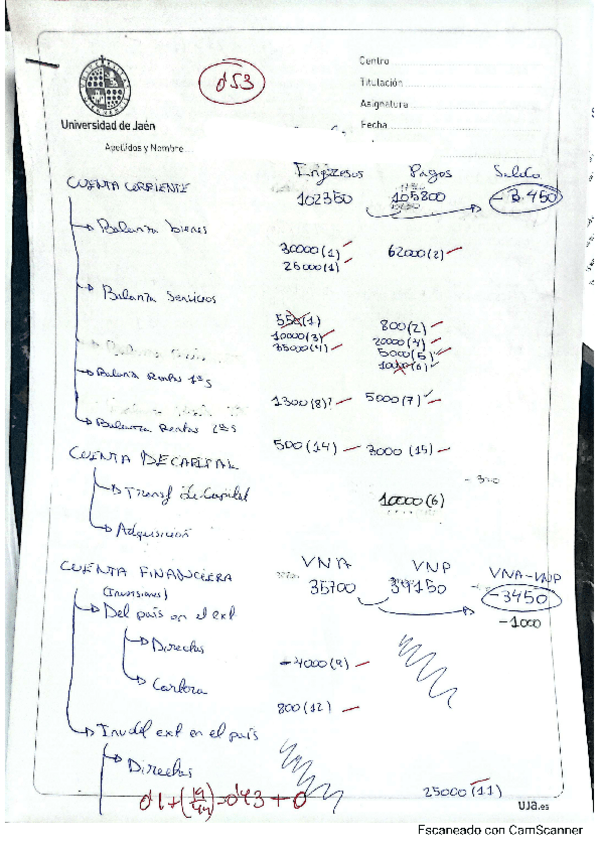 0'53
Centro
Titulación
Asignatura
Fecha
Universidad de Jaén
Apellidos y Nombre
Ingresos Pagos Saldo
CUENTA CORRIENTE 102350 105800 -3.450
Balanza bienes
30000 (1) 62000 (2)
25000 (1)
Balanza Servicios
550 (1) 800 (2)
10000 (3) 20000 (4)
35000 (4) 5000 (5)
1000 (6)
Balanza Rentas 1ªS
1300 (8)? 5000 (7)
Balanza Rentas 2ªS
500 (14) 3000 (15)
CUENTA DE CAPITAL
Transf de Capital 10000 (6)
Adquisición
CUENTA FINANCIERA VNA VNP VNA-VNP
35700 39150 -3450
(Inversiones)
Del país en el ext -1000
Directas
-4000 (9)
Cartera
800 (12)
Inv del ext en el país
Directas
25000 (11)
0'1+(19/44)=0'43+0
uja.es
Escaneado con CamScanner